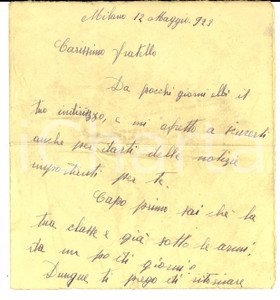 Milano 12 Maggio 922
Carissimo fratello
Da pochi giorni ebbi il
tuo indirizzo, e mi affretto a scriverti
anche per darti delle notizie
importanti per te.
Capo primo sai che la
tua classe è già sotto le armi,
da un po di giorni e
Dunque ti prego di ritornare